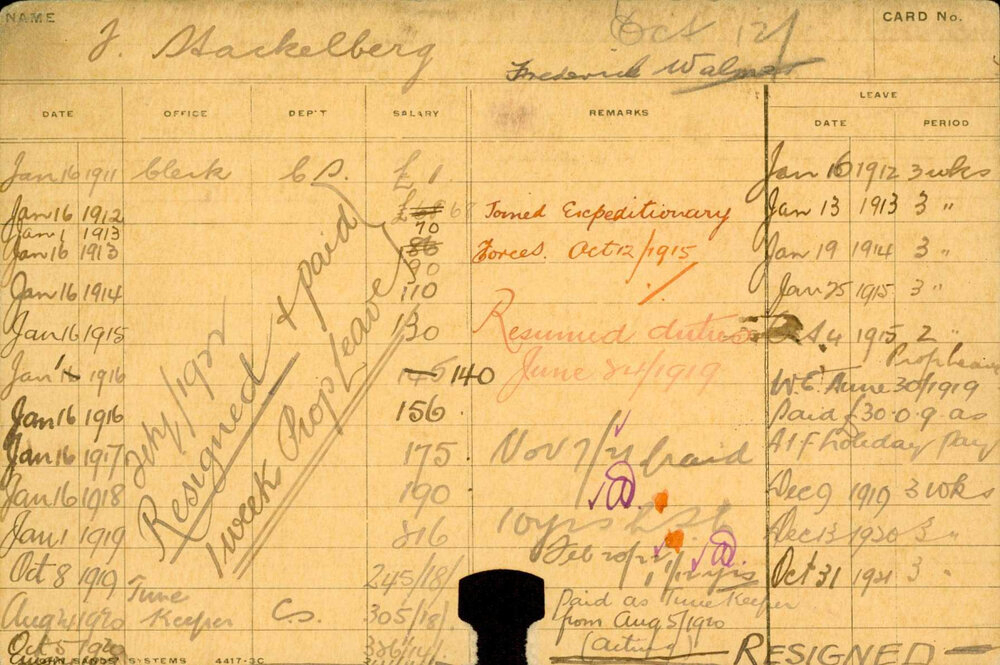 NAME
F. Stackelberg
Oct 12/
CARD No.
Frederick
DATE OFFICE DEP'T SALARY REMARKS LEAVE
DATE PERIOD
Jan 16 1911 Clerk C S. £ 1 Jan 16 1912 3 wks
Jan 16 1912 68 Joined Expeditionary Jan 13 1913 3 "
Jan 1 1913 70
Jan 16 1913 90 Forces. Oct 12/1915 Jan 19 1914 3 "
Jan 16 1914 110 Jan 25 1915 3 "
Jan 16 1915 130 Resumed duties 4 1915 2 "
Prop leave
Jan 1 1916 140 June 24/1919 W.E. June 30/1919
Jan 16 1916 156 Paid £30.0.9 as
Jan 16 1917 175 Nov 7/21 paid AIF holiday pay
Jan 16 1918 190 Dec 9 1919 3 wks
Jan 1 1919 216 10 yrs L S L Dec 13 1920 3 "
Oct 8 1919 245/18/ Feb 20/22 Oct 31 1921 3 "
Time
Aug 4 1920 Keeper C S. 305/18/ Paid as Time Keeper
from Aug 5/1920
Oct 5 1920 326/14/ (acting)
RESIGNED
/1922
Resigned & paid
1 week Prop leave
SANDS SYSTEMS 4417-3C